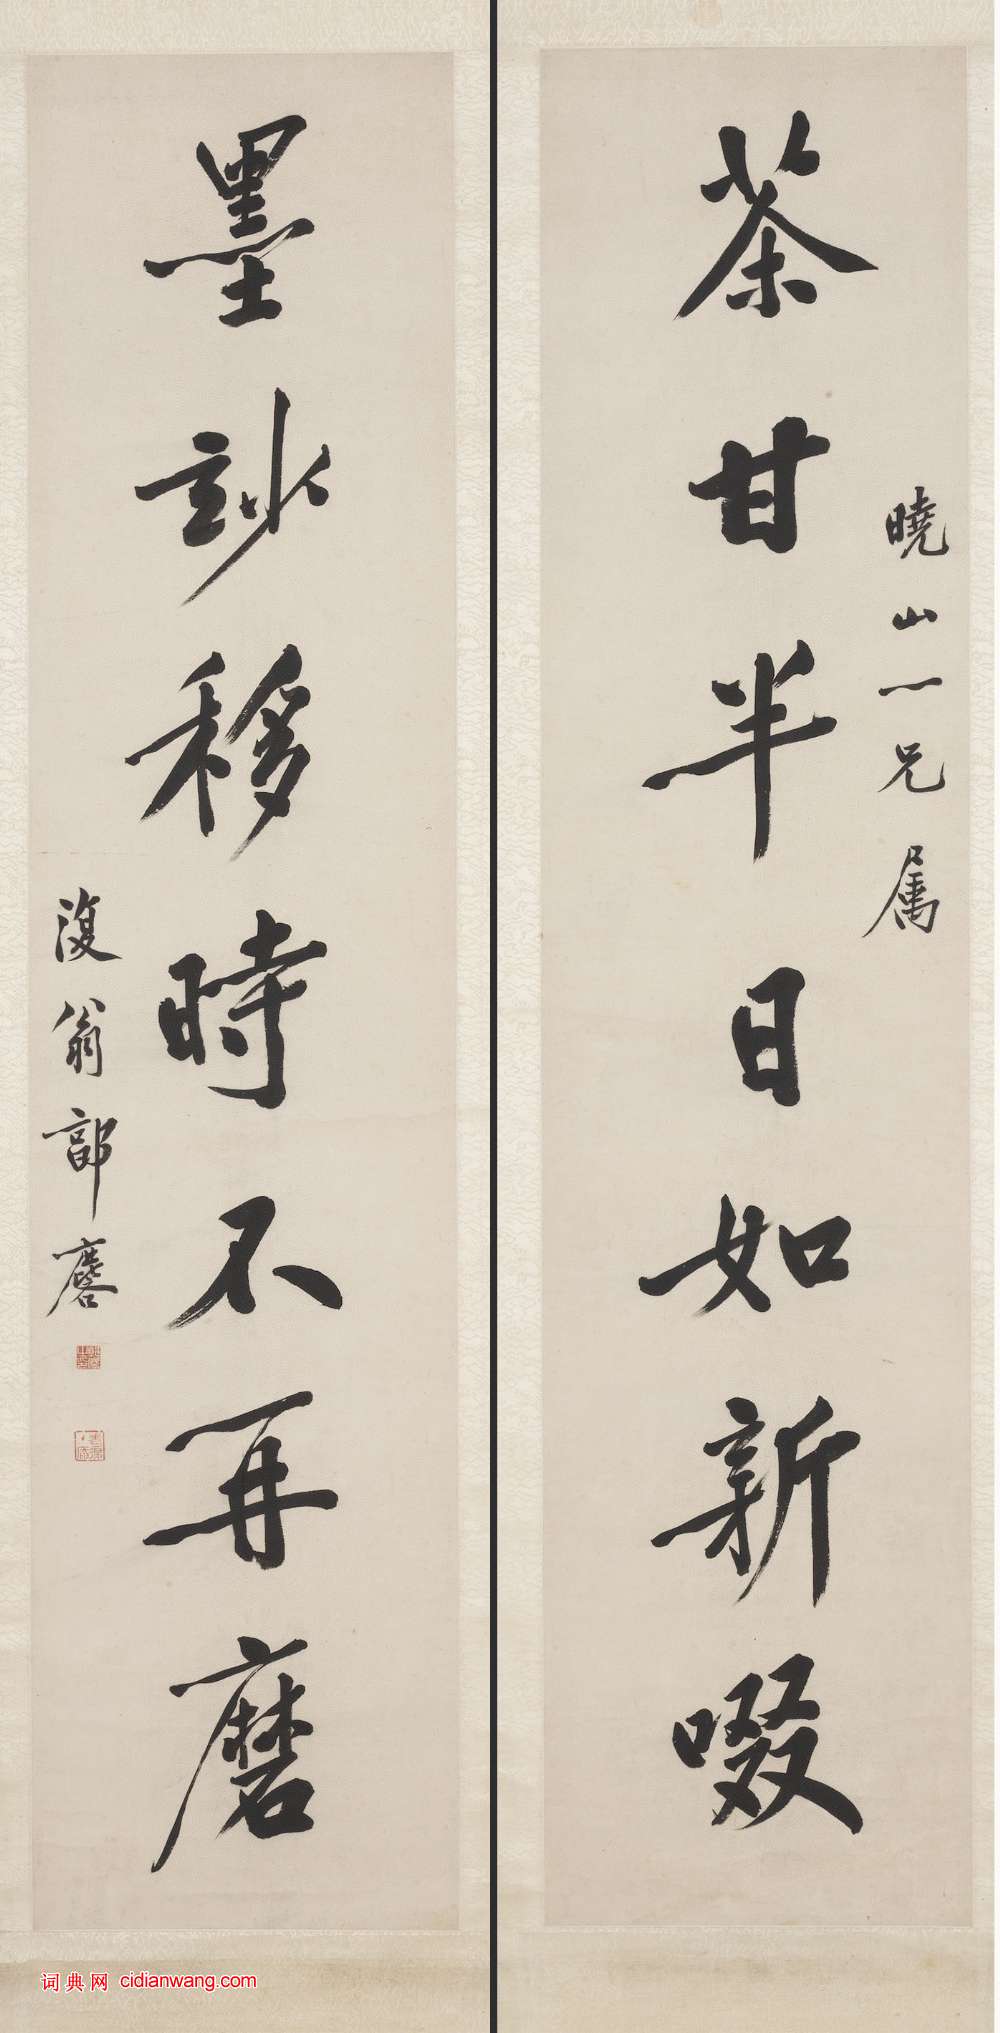 茶甘半日如新啜
曉山一兄属
墨玅移時不再磨
復翁郭麐
词典网 cidianwang.com